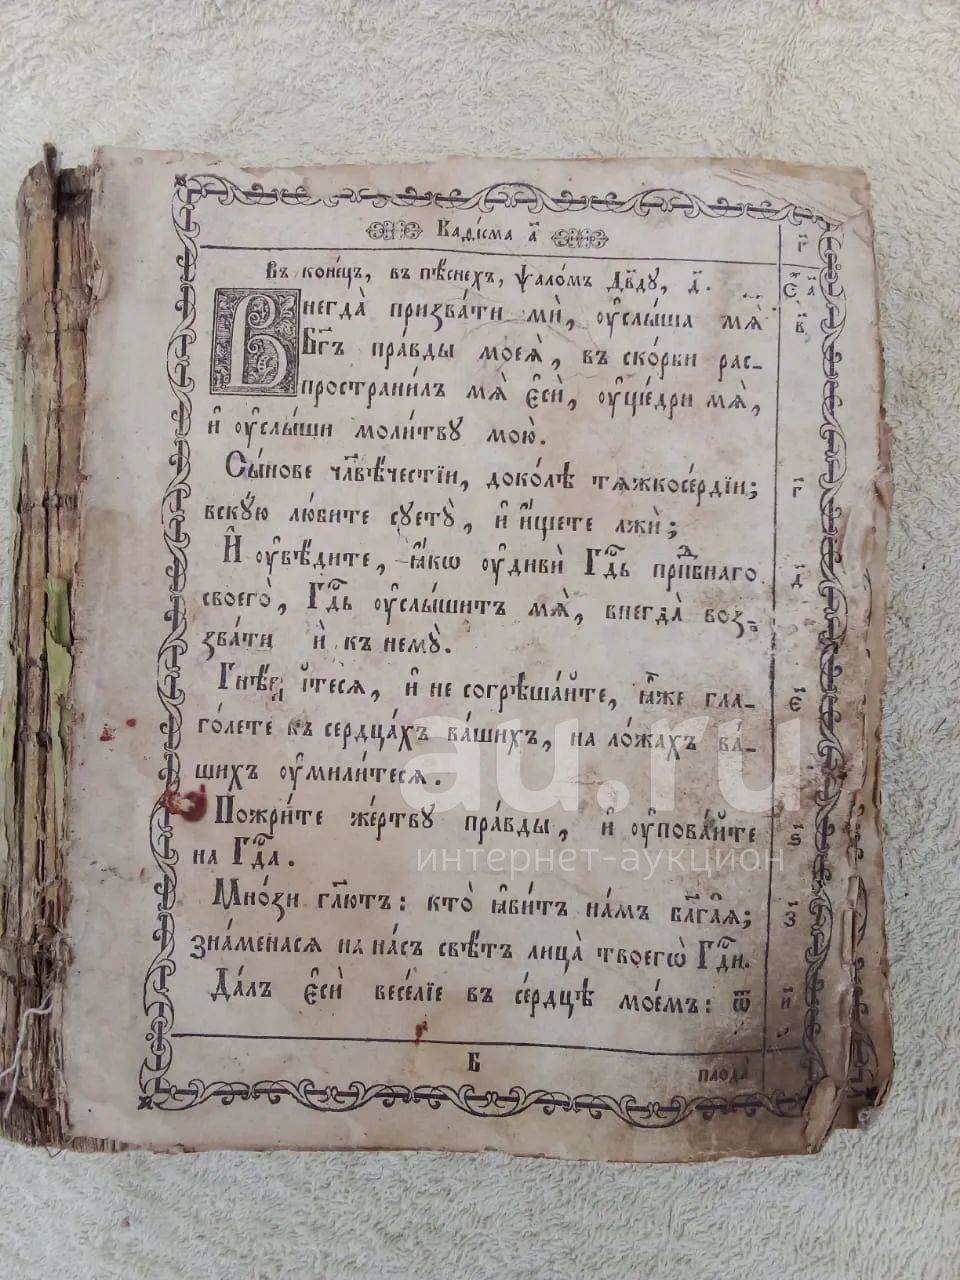 Каѳі́сма а҃
г҃
Въ коне́цъ, въ пѣ́снехъ, ѱало́мъ Дв҃ду, д҃.
В҃
Внегда̀ призва́ти мѝ, ᲂу҆слы́ша мѧ̀
Бг҃ъ пра́вды моеѧ̀, въ ско́рби рас-
простра́ни́лъ мѧ̀ є҆сѝ, ᲂу҆ще́дри мѧ̀,
и҆ ᲂу҆слы́ши моли́тву мою̀.
Сы́нове чл҃вѣ́честїи, доко́лѣ тѧжкосе́рдїи; г҃
вску́ю лю́бите суетꙋ̀, и҆ и҆́щете лжѝ;
И҆ ᲂу҆вѣ́дите, ꙗ҆́кѡ ᲂу҆дивѝ Гдⷭ҇ь прпⷣбнаго д҃
своего̀, Гдⷭ҇ь ᲂу҆слы́шитъ мѧ̀, внегда̀ воз-
зва́ти и҆ къ нему̀.
Гнѣ́в йтесѧ, и҆ не согрѣша́йте, ꙗ҆̀же гла- є҃
го́лете къ сердца́хъ ва́шихъ, на ло́жахъ ва́-
шихъ ᲂу҆мили́тесѧ.
Пожри́те же́ртву пра́вды, и҆ ᲂу҆пова́йте ѕ҃
на Гдⷭ҇а.
Мно́зи гл҃ютъ: кто̀ ꙗ҆ви́тъ на́мъ бл҃га̑ѧ; з҃
зна́менасѧ на на́съ свѣ́тъ лица̀ твоегѡ̀ Гдⷭ҇и.
Да́лъ є҆сѝ весе́лїе въ се́рдцѣ мое́мъ: ѿ и҃
Б
плода̀
au.ru
интернет-аукцион